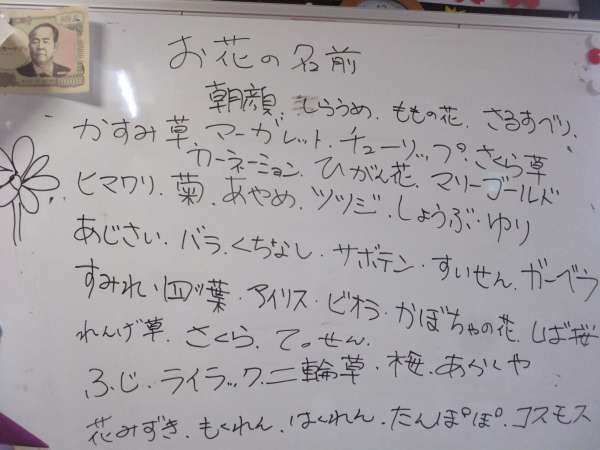 お花の名前
朝顔 しらうめ、ももの花、さるすべり、
かすみ草、マーガレット、チューリップ、さくら草
カーネーション、ひがん花、マリーゴールド
ヒマワリ、菊、あやめ、ツツジ、しょうぶ・ゆり
あじさい、バラ、くちなし、サボテン・すいせん、ガーベラ
すみれ・四ッ葉・アイリス・ビオラ・かぼちゃの花、しば桜
れんげ草、さくら、て。せん、
ふじ・ライラック、二輪草・梅、あかしや
花みずき、もくれん、はくれん、たんぽぽ、コスモス